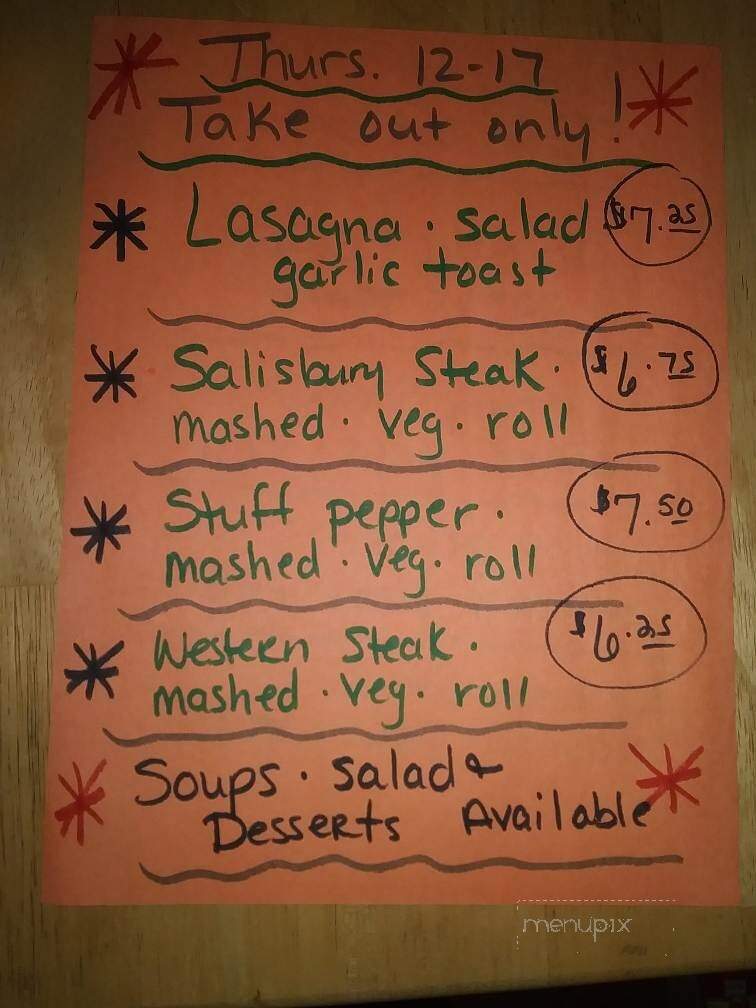 Thurs. 12-17
Take out only!
Lasagna · salad $7.25
garlic toast
Salisbury Steak · $6.75
mashed · veg · roll
Stuff pepper · $7.50
mashed · Veg · roll
Western Steak · $6.25
mashed · veg · roll
Soups · salad &
Desserts Available
menupix